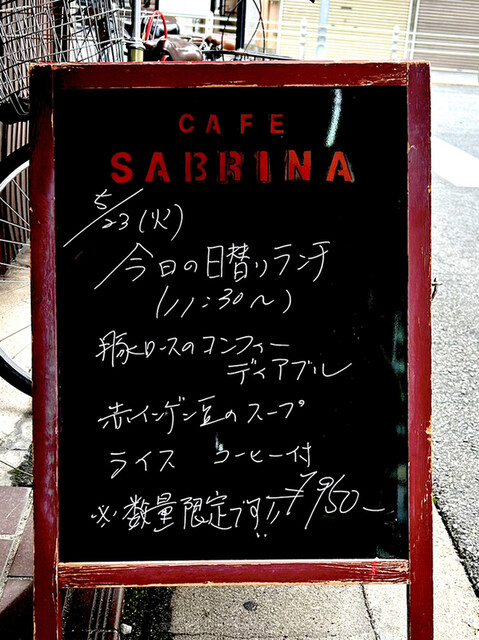 CAFE
SABRINA
5/23(火)
今日の日替りランチ
(11:30〜)
豚ロースのコンフィー
ディアブル
赤インゲン豆のスープ
ライス コーヒー付
※数量限定です!! ¥950ー